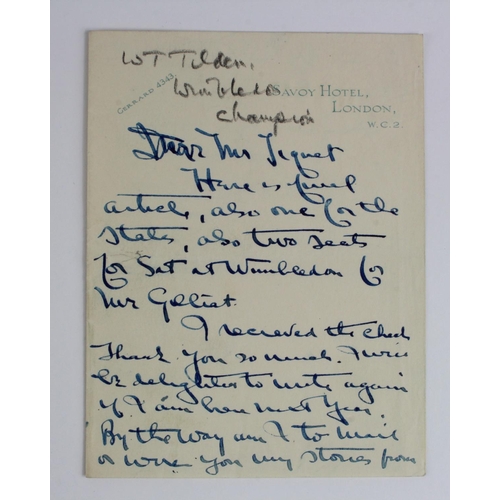 WT Tilden,
Wimbledon
Champion
GERRARD 4343.
SAVOY HOTEL,
LONDON,
W.C.2.
Dear Mr
Here is final
article, also one for the
States, also two seats
for Sat at Wimbledon for
Mr Gilliat.
I recieved the check
Thank you so much. I will
be delighted to write again
if I am here next year.
By the way am I to mail
or wire you my stories from